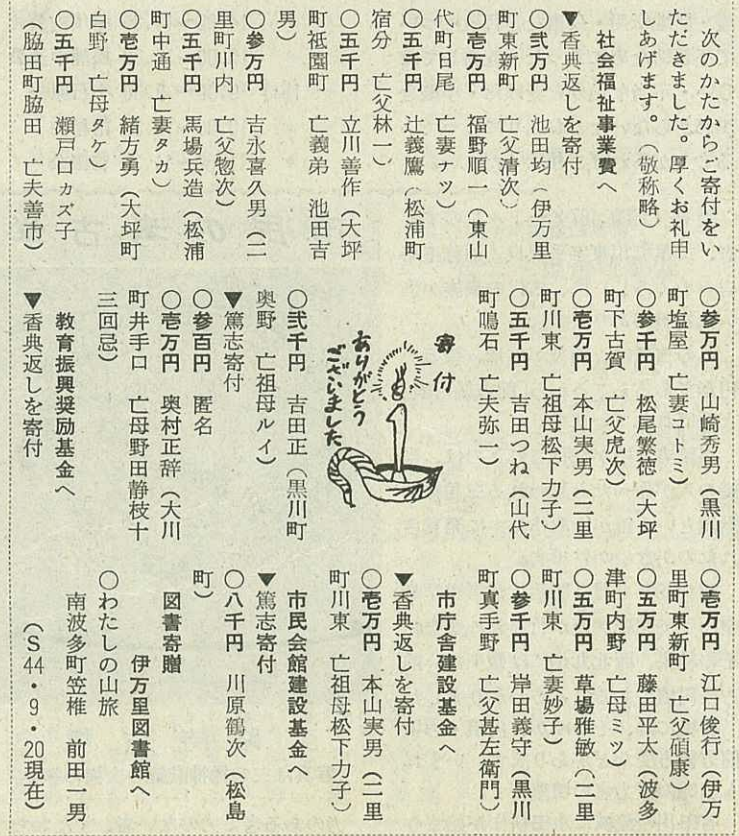 次のかたからご寄付をい
ただきました。厚くお礼申
しあげます。（敬称略）
社会福祉事業費へ
▼香典返しを寄付
○弐万円　池田均（伊万里
町東新町　亡父清次）
○壱万円　福野順一（東山
代町日尾　亡妻ナツ）
○五千円　辻義鷹（松浦町
宿分　亡父林一）
○五千円　立川善作（大坪
町祇園町　亡義弟　池田吉
男）
○参万円　吉永喜久男（二
里町川内　亡父惣次）
○五千円　馬場兵造（松浦
町中通　亡妻タカ）
○壱万円　緒方勇（大坪町
白野　亡母タケ）
○五千円　瀬戸口カズ子
（脇田町脇田　亡夫善市）
○参万円　山崎秀男（黒川
町塩屋　亡妻コトミ）
○参千円　松尾繁徳（大坪
町下古賀　亡父虎次）
○壱万円　本山実男（二里
町川東　亡祖母松下力子）
○五千円　吉田つね（山代
町鳴石　亡夫弥一）
寄付
ありがとう
ございました
○弐千円　吉田正（黒川町
奥野　亡祖母ルイ）
▼篤志寄付
○参百円　匿名
○壱万円　奥村正辞（大川
町井手口　亡母野田静枝十
三回忌）
教育振興奨励基金へ
▼香典返しを寄付
○壱万円　江口俊行（伊万
里町東新町　亡父碩康）
○五万円　藤田平太（波多
津町内野　亡母ミツ）
○五万円　草場雅敏（二里
町川東　亡妻妙子）
○参千円　岸田義守（黒川
町真手野　亡父甚左衛門）
市庁舎建設基金へ
▼香典返しを寄付
○壱万円　本山実男（二里
町川東　亡祖母松下力子）
市民会館建設基金へ
▼篤志寄付
○八千円　川原鶴次（松島
町）
図書寄贈
伊万里図書館へ
○わたしの山旅
南波多町笠椎　前田一男
（S44・9・20現在）